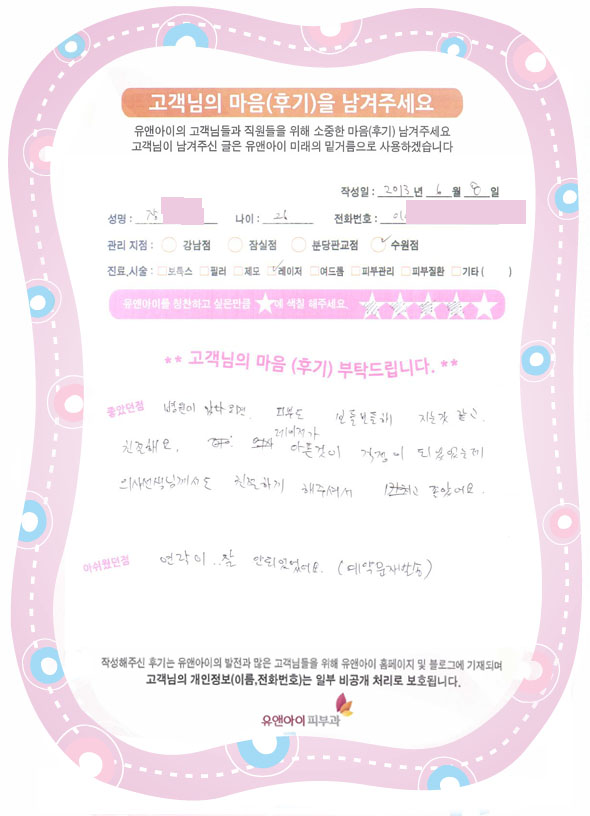 고객님의 마음(후기)을 남겨주세요
유앤아이의 고객님들과 직원들을 위해 소중한 마음(후기) 남겨주세요
고객님이 남겨주신 글은 유앤아이 미래의 밑거름으로 사용하겠습니다
작성일 : 2013 년 6 월 8 일
성명 : 장 나이 : 26 전화번호 : 01
관리 지점 : 강남점 잠실점 분당판교점 수원점
진료,시술 : 보톡스 필러 제모 레이저 여드름 피부관리 피부질환 기타 ( )
유앤아이를 칭찬하고 싶은만큼 ★에 색칠 해주세요.
** 고객님의 마음 (후기) 부탁드립니다. **
좋았던점 병원이 갔다오면, 피부도 반들반들해 지는것 같고.
레이저가
친절해요, 아픈것이 걱정이 되었었는데
의사선생님께서도 친절하게 해주셔서 좋았어요.
아쉬웠던점 연락이..잘 안되있었어요. (예약문자발송)
작성해주신 후기는 유앤아이의 발전과 많은 고객님들을 위해 유앤아이 홈페이지 및 블로그에 기재되며
고객님의 개인정보(이름,전화번호)는 일부 비공개 처리로 보호됩니다.
유앤아이피부과